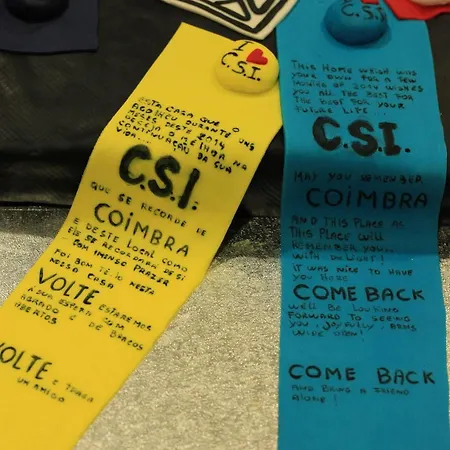 I
C.S.I.
ESTA CASA QUE O
ACOLHEU DURANTE UNS
MESES DESTE 2014
DESEJA O MELHOR NA
CONTINUAÇÃO DA SUA
VIDA...
C.S.I.
QUE SE RECORDE DE
COIMBRA
E DESTE LOCAL COMO
ELE SE RECORDARÁ DE SI
COM IMENSO PRAZER
FOI BOM TÊ-LO NESTA
NESSA CASA
VOLTE ESTAREMOS
À SUA ESPERA COM
AGRADO E DE BRAÇOS
ABERTOS
VOLTE E TRAGA
UM AMIGO
C.S.I.
THIS HOME WHICH WAS
YOUR OWN FOR A FEW
MONTHS OF 2014 WISHES
YOU ALL THE BEST FOR
THE BEST FOR YOUR
FUTURE LIFE...
C.S.I.
MAY YOU REMEMBER
COIMBRA
AND THIS PLACE AS
THIS PLACE WILL
REMEMBER YOU...
WITH DELIGHT!
IT WAS NICE TO HAVE
YOU HERE
COME BACK
WE'LL BE LOOKING
FORWARD TO SEEING
YOU, JOYFULLY, ARMS
WIDE OPEN!
COME BACK
AND BRING A FRIEND
ALONE!